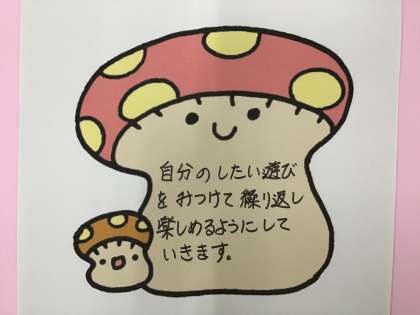 自分のしたい遊び
をみつけて繰り返し
楽しめるようにして
いきます。